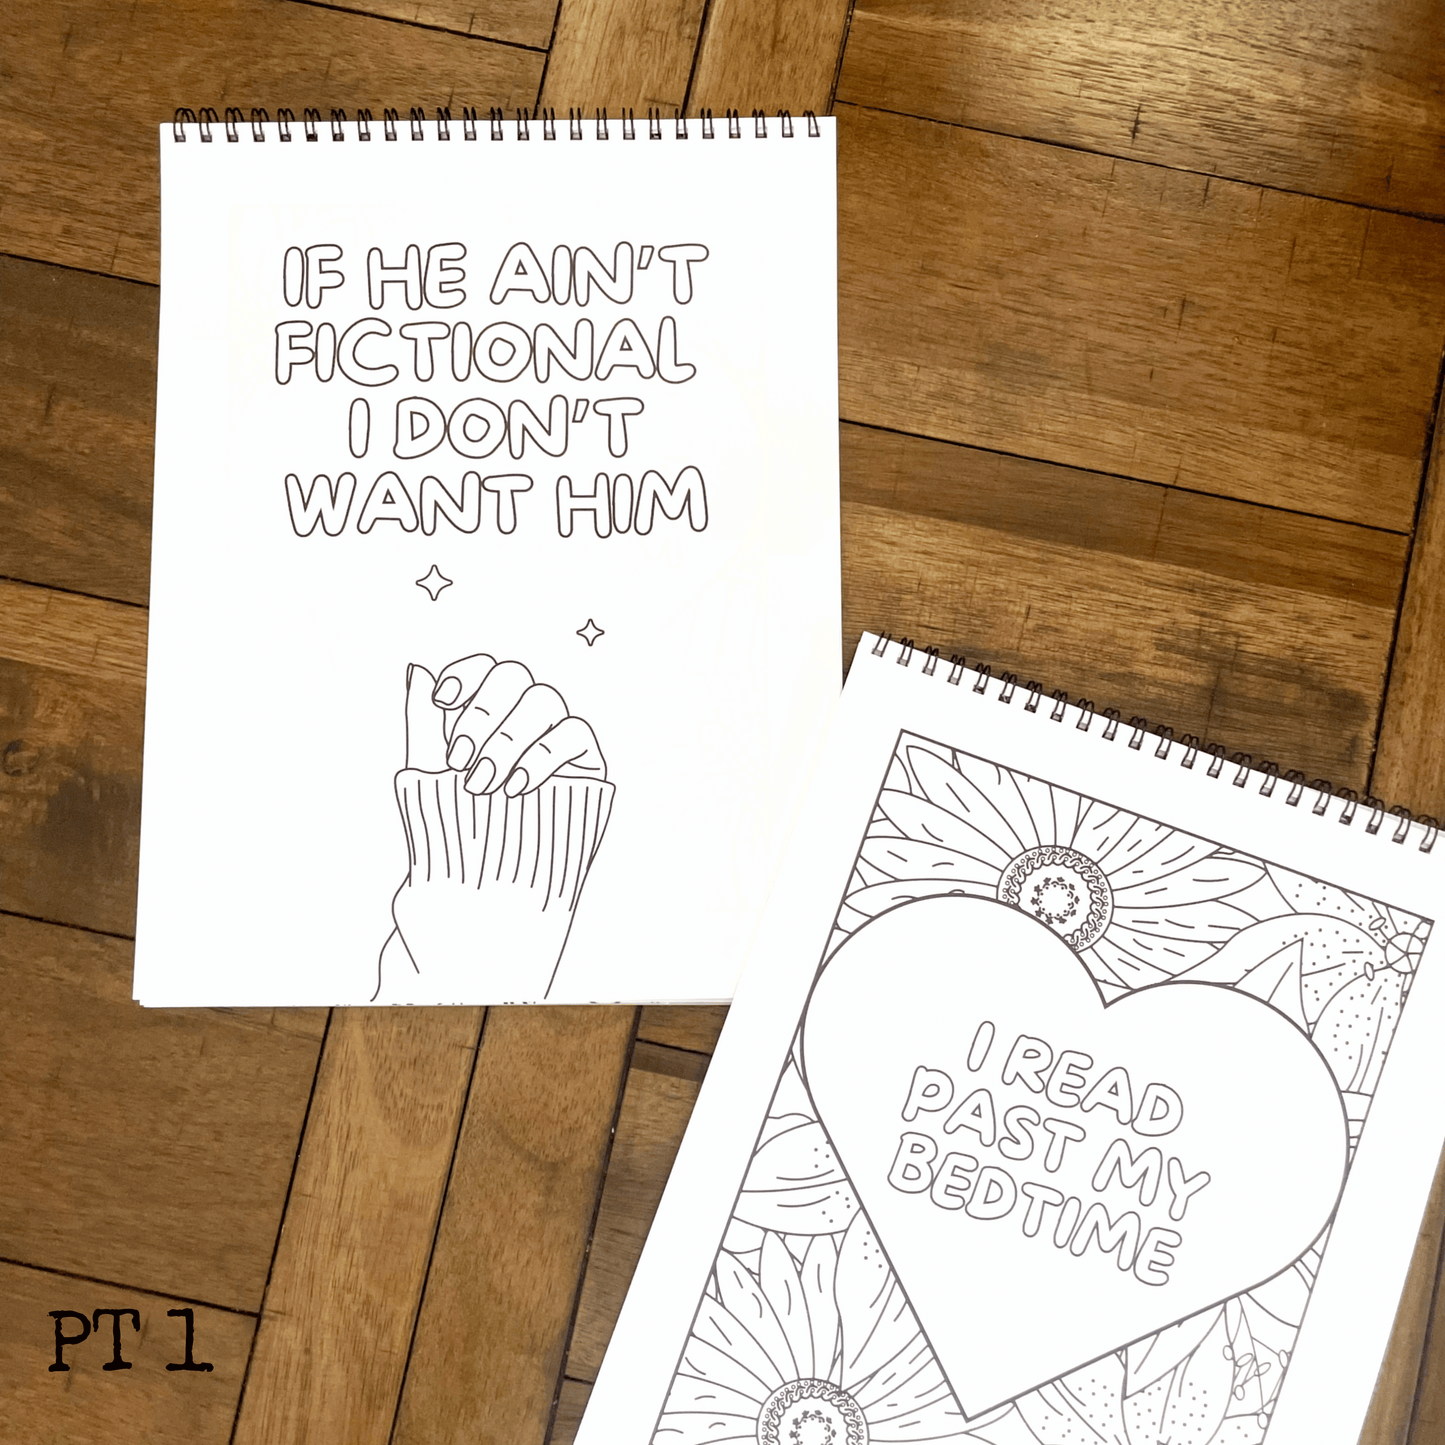 IF HE AIN'T
FICTIONAL
I DON'T
WANT HIM
I READ
PAST MY
BEDTIME
PT 1